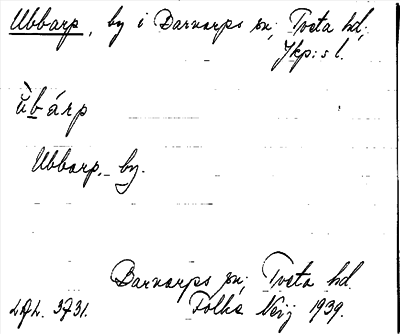 Ubbarp, by i Barnarps sn, Tveta hd,
Jkp:s l.
ùbárp
Ubbarp. by.
Barnarps sn, Tveta hd
3731. Folke 1939.